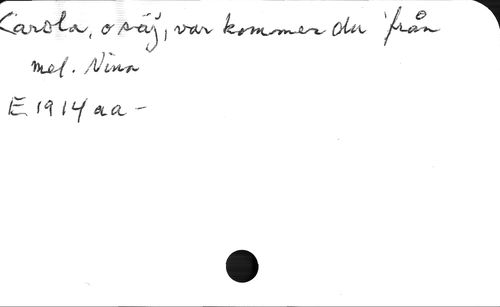 Carola, o säj, var kommer du från
mel. Nina
E 1914 aa -